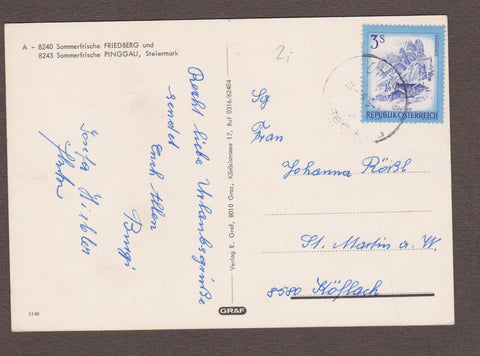 A - 8240 Sommerfrische FRIEDBERG und
8243 Sommerfrische PINGGAU, Steiermark
2,-
3 S
REPUBLIK ÖSTERREICH
Recht liebe Urlaubsgrüße
sendet
Euch Allen
Burgi
Sg
Frau
Johanna Rößl
St. Martin a. W.
8580 Köflach
Verlag R. Graf, 8010 Graz, Ködökistrasse 17, Ruf 0316/62404
GRAF
5148